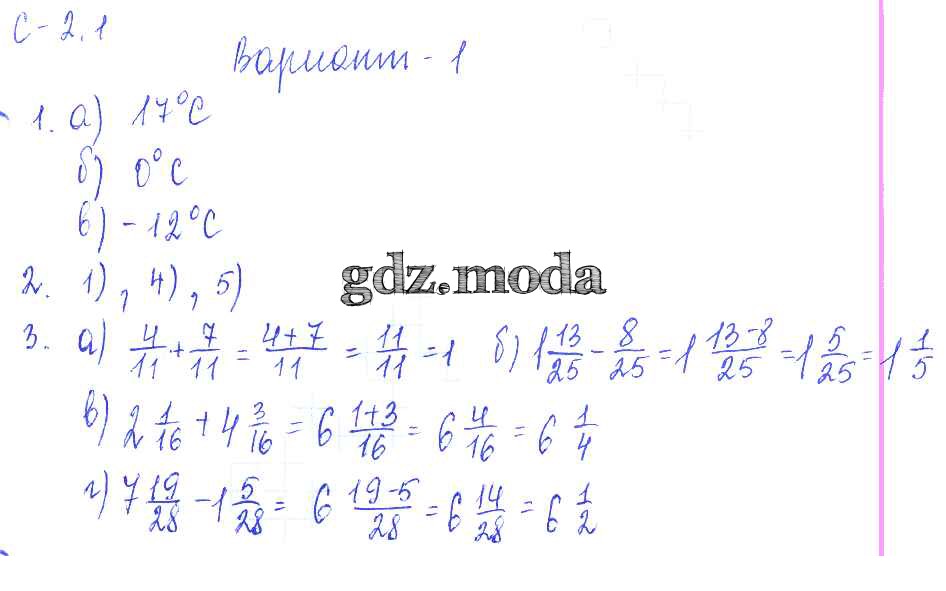 С-2.1
Вариант-1
1. а) 17°С
б) 0°С
в) -12°С
2. 1), 4), 5)
gdz.moda
3. а) 4/11 + 7/11 = (4+7)/11 = 11/11 = 1 б) 1 13/25 - 8/25 = 1 (13-8)/25 = 1 5/25 = 1 1/5
в) 2 1/16 + 4 3/16 = 6 (1+3)/16 = 6 4/16 = 6 1/4
г) 7 19/28 - 1 5/28 = 6 (19-5)/28 = 6 14/28 = 6 1/2